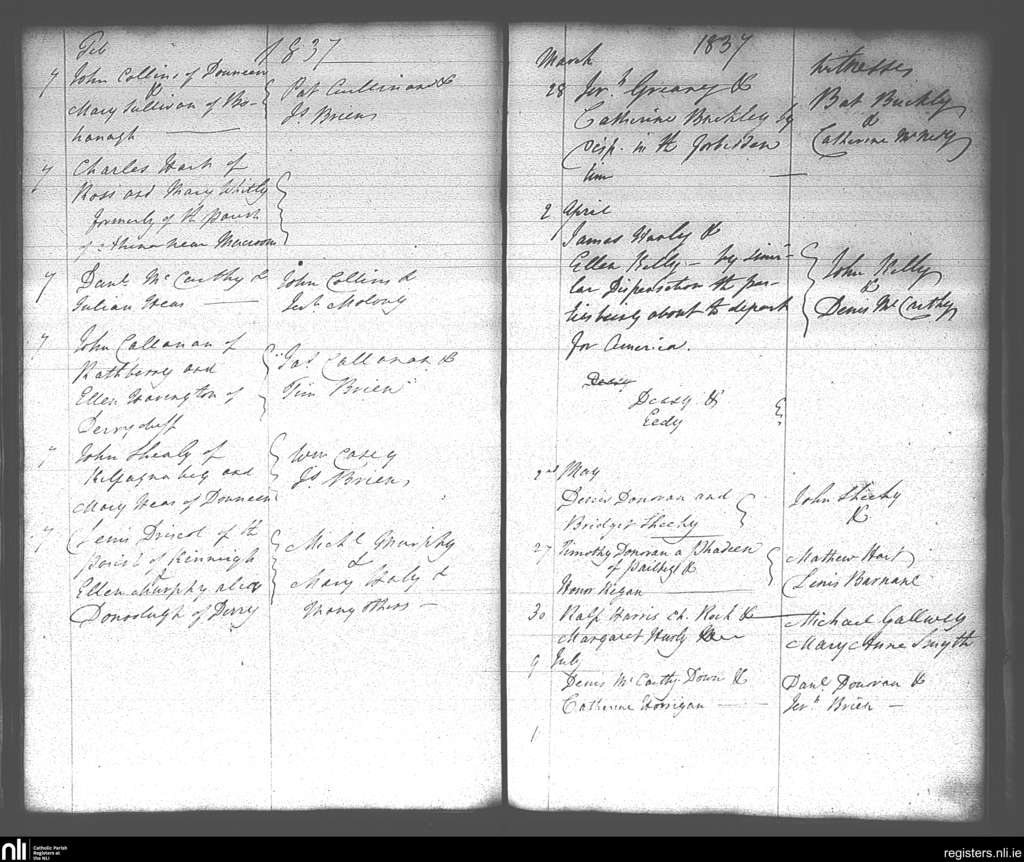 Feb 1837
7 John Collins of Douneen
&
Mary Sullivan of Bo-
hanagh
Pat Cullinane &
Js Brien
7 Charles Hart of
Ross and Mary Whitly
formerly of the parish
of near Macroom
7 Danl McCarthy &
Julian Heas
John Collins &
Jerh Molony
7 John Callanan of
Rathbarry and
Ellen Havington of
Derryduff
Jas Callanan &
Tim Brien
7 John Shealy of
Kilfagnabeg and
Mary Heas of Douneen
Wm Casey
Js Brien
7 Denis Driscol of the
parish of Kenneigh
&
Ellen Murphy alias
Donoolugh of Derry
Michl Murphy
&
Mary Haly &
Many others
1837
March
Witnesses
28 Jerh Greany &
Catherine Buckley by
Disp. in the forbidden
time
Bat Buckly
&
Catherine
2 April
James Hurly &
Ellen Kelly - by simi-
lar Dispensation the par-
ties being about to depart
for America.
John Kelly
&
Denis McCarthy
Deasy
Deasy &
Eedy
2nd May
Denis Donovan and
Bridget Sheehy
John Sheehy
&
27 Timothy Donovan a Phadeen
of &
Honor Regan
Mathew Hart
Denis Barnane
30 Ralf Harris Ch. Rock &
Margaret Hurly
Michael Gallwey
Mary Anne Smyth
9 July
Denis McCarthy Down &
Catherine Horrigan
Danl Donovan &
Jerh Brien
1
nli
Catholic Parish
Registers at
the NLI
registers.nli.ie